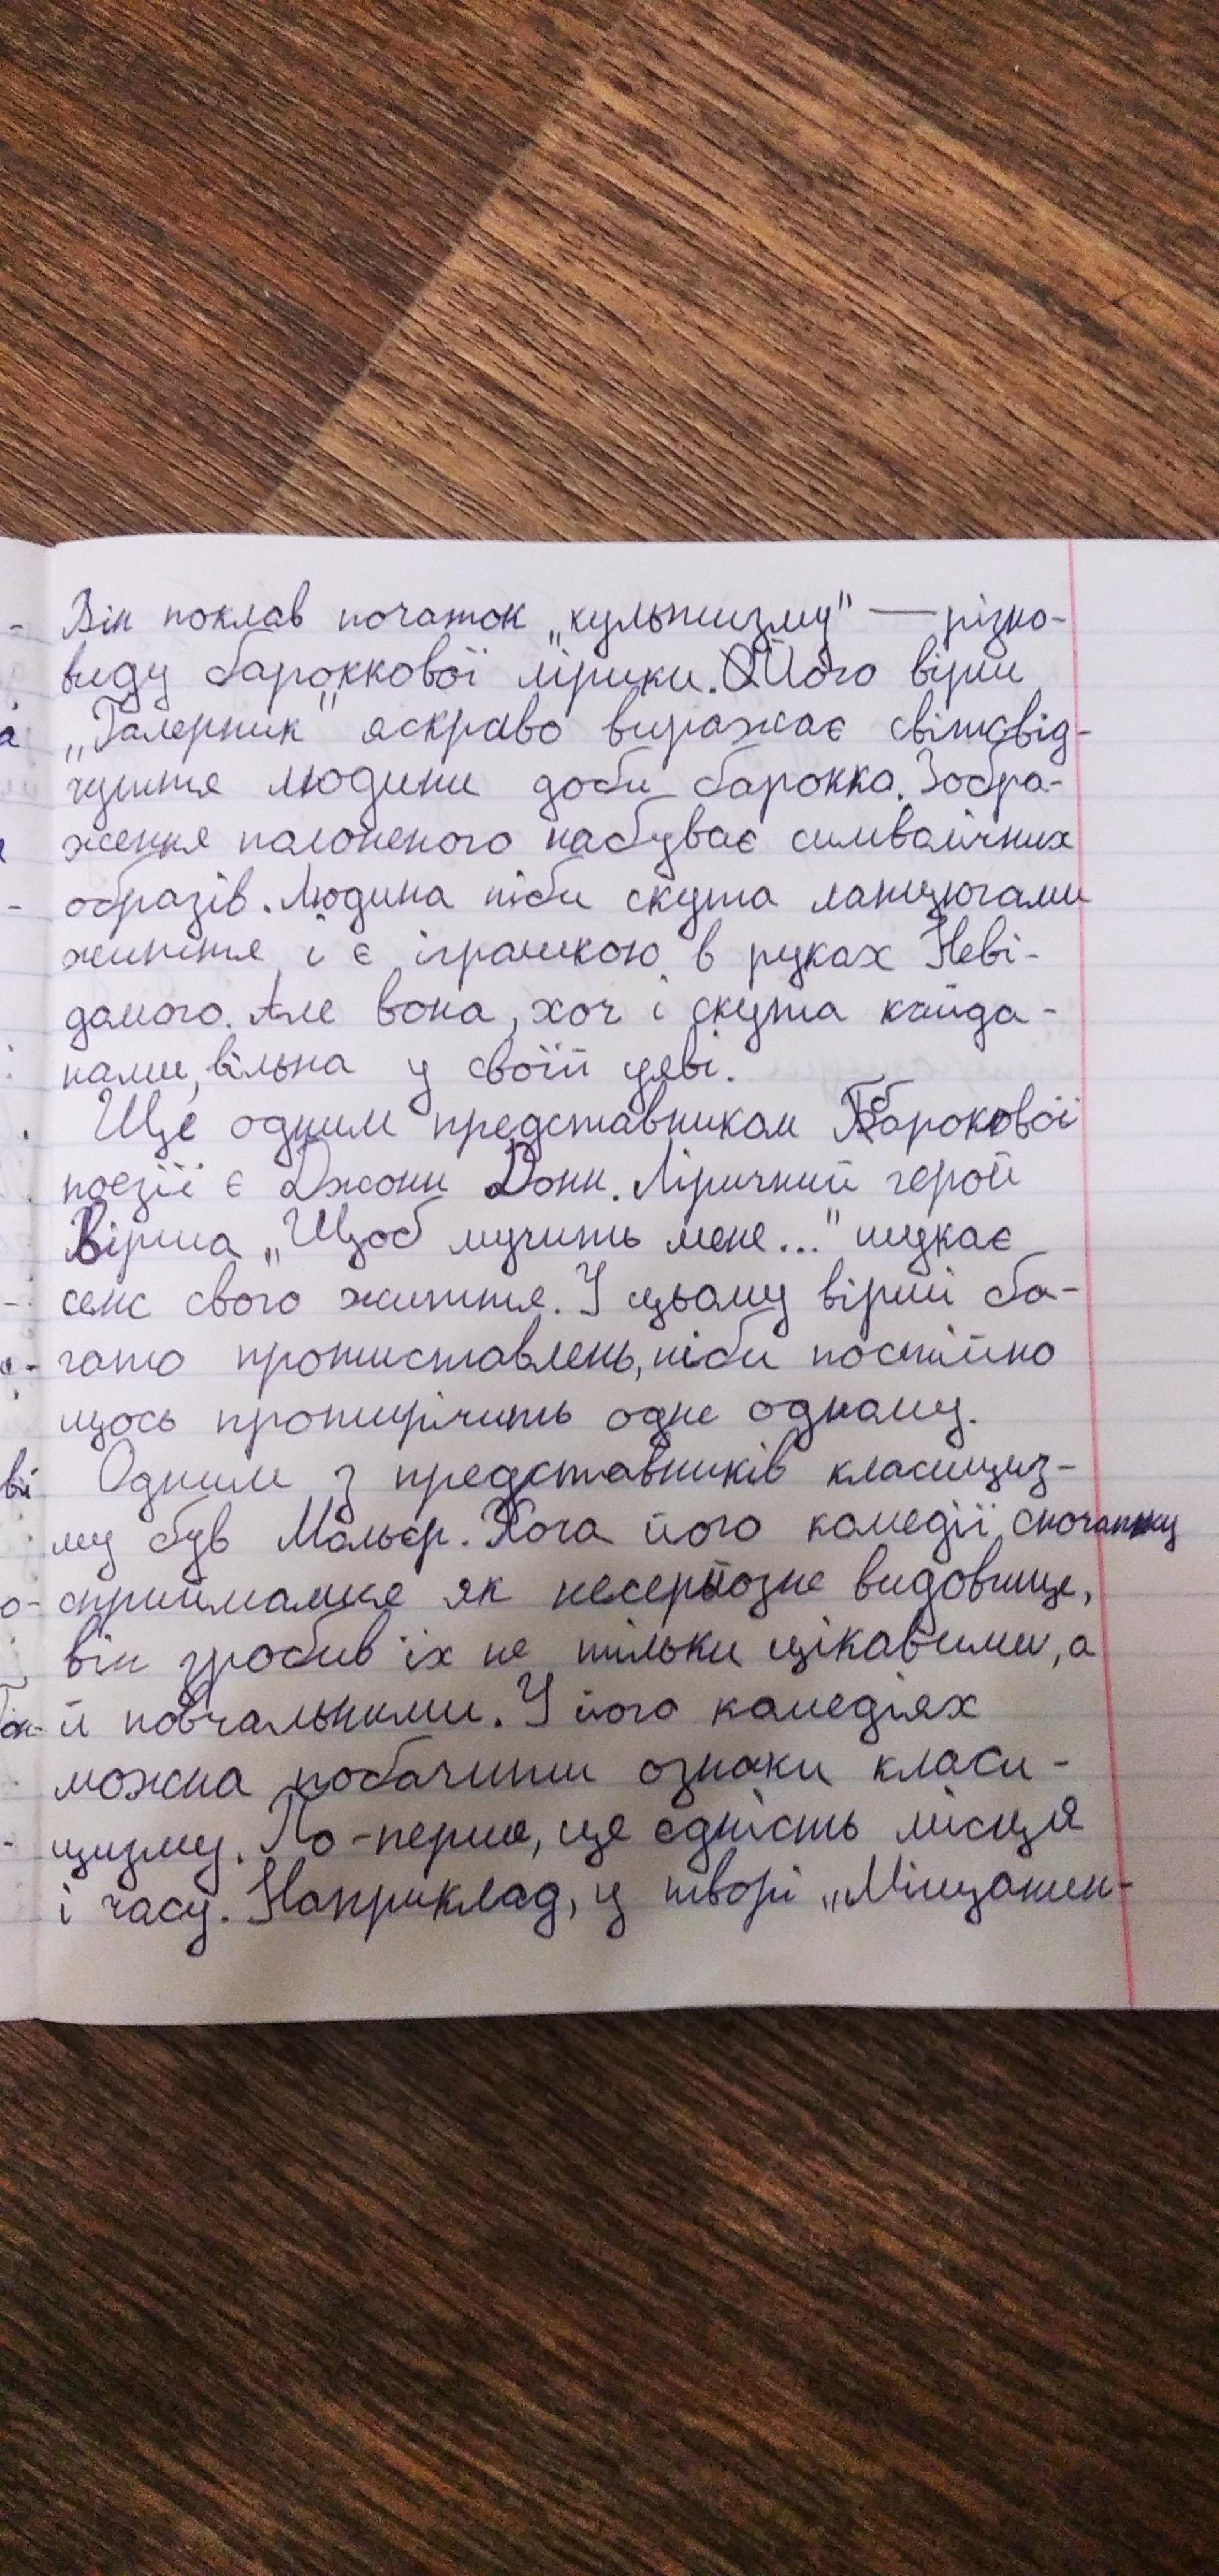 Він поклав початок „культизму" — різно-
виду бароккової лірики. Його вірш
„Галерник" яскраво виражає світовід-
чуття людини доби барокко. Зобра-
ження полоненого набуває символічних
образів. Людина ніби скута ланцюгами
життя і є іграшкою в руках Неві-
домого. Але вона, хоч і скута кайда-
нами, вільна у своїй уяві.
Ще одним представником барокової
поезії є Джонн Донн. Ліричний герой
вірша „Щоб мучить мене..." шукає
сенс свого життя. У цьому вірші ба-
гато протиставлень, ніби постійно
щось протирічить одне одному.
Одним з представників класициз-
му був Мольєр. Хоча його комедії спочатку
сприймалися як несерйозне видовище,
він зробив їх не тільки цікавими, а
й повчальними. У його комедіях
можна побачити ознаки класи-
цизму. По-перше, це єдність місця
і часу. Наприклад, у творі „Міщанин-